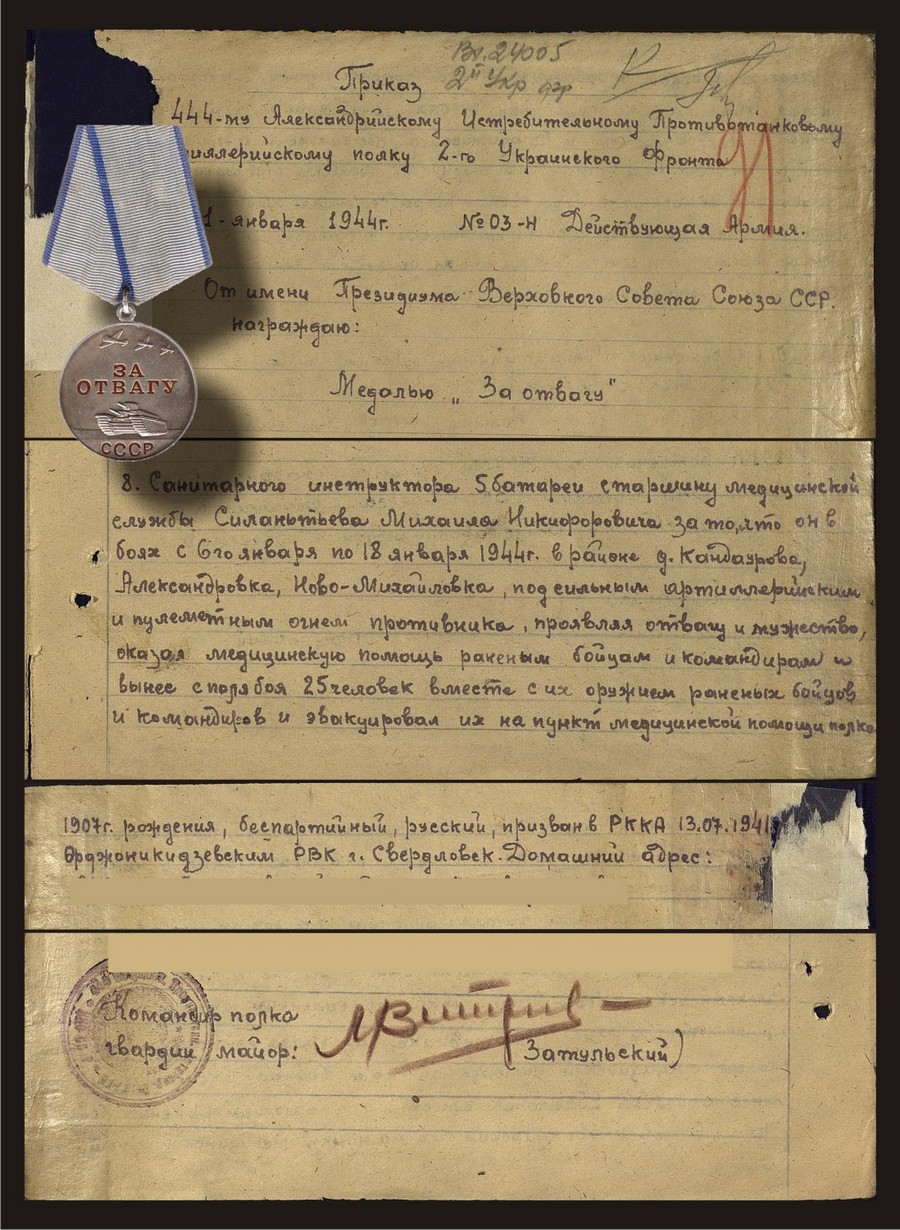 Вх. 24005
2й Укр фр
Приказ
444-му Александрийскому Истребительному Противотанковому
иллерийскому полку 2-го Украинского Фронта
1-января 1944г. №03-Н Действующая Армия.
От имени Президиума Верховного Совета Союза ССР.
награждаю:
Медалью „За отвагу"
ЗА
ОТВАГУ
СССР
8. Санитарного инструктора 5 батареи старшину медицинской
службы Силантьева Михаила Никифоровича за то, что он в
боях с 6го января по 18 января 1944г. в районе д. Кандаурова,
Александровка, Ново-Михайловка, под сильным артиллерийским
и пулеметным огнем противника, проявляя отвагу и мужество,
оказал медицинскую помощь раненым бойцам и командирам и
вынес с поля боя 25 человек вместе с их оружием раненых бойцов
и командиров и эвакуировал их на пункт медицинской помощи полка
1907г. рождения, беспартийный, русский, призван в РККА 13.07.1941
Орджоникидзевским РВК г. Свердловск. Домашний адрес:
Командир полка
гвардии майор: (Затульский)